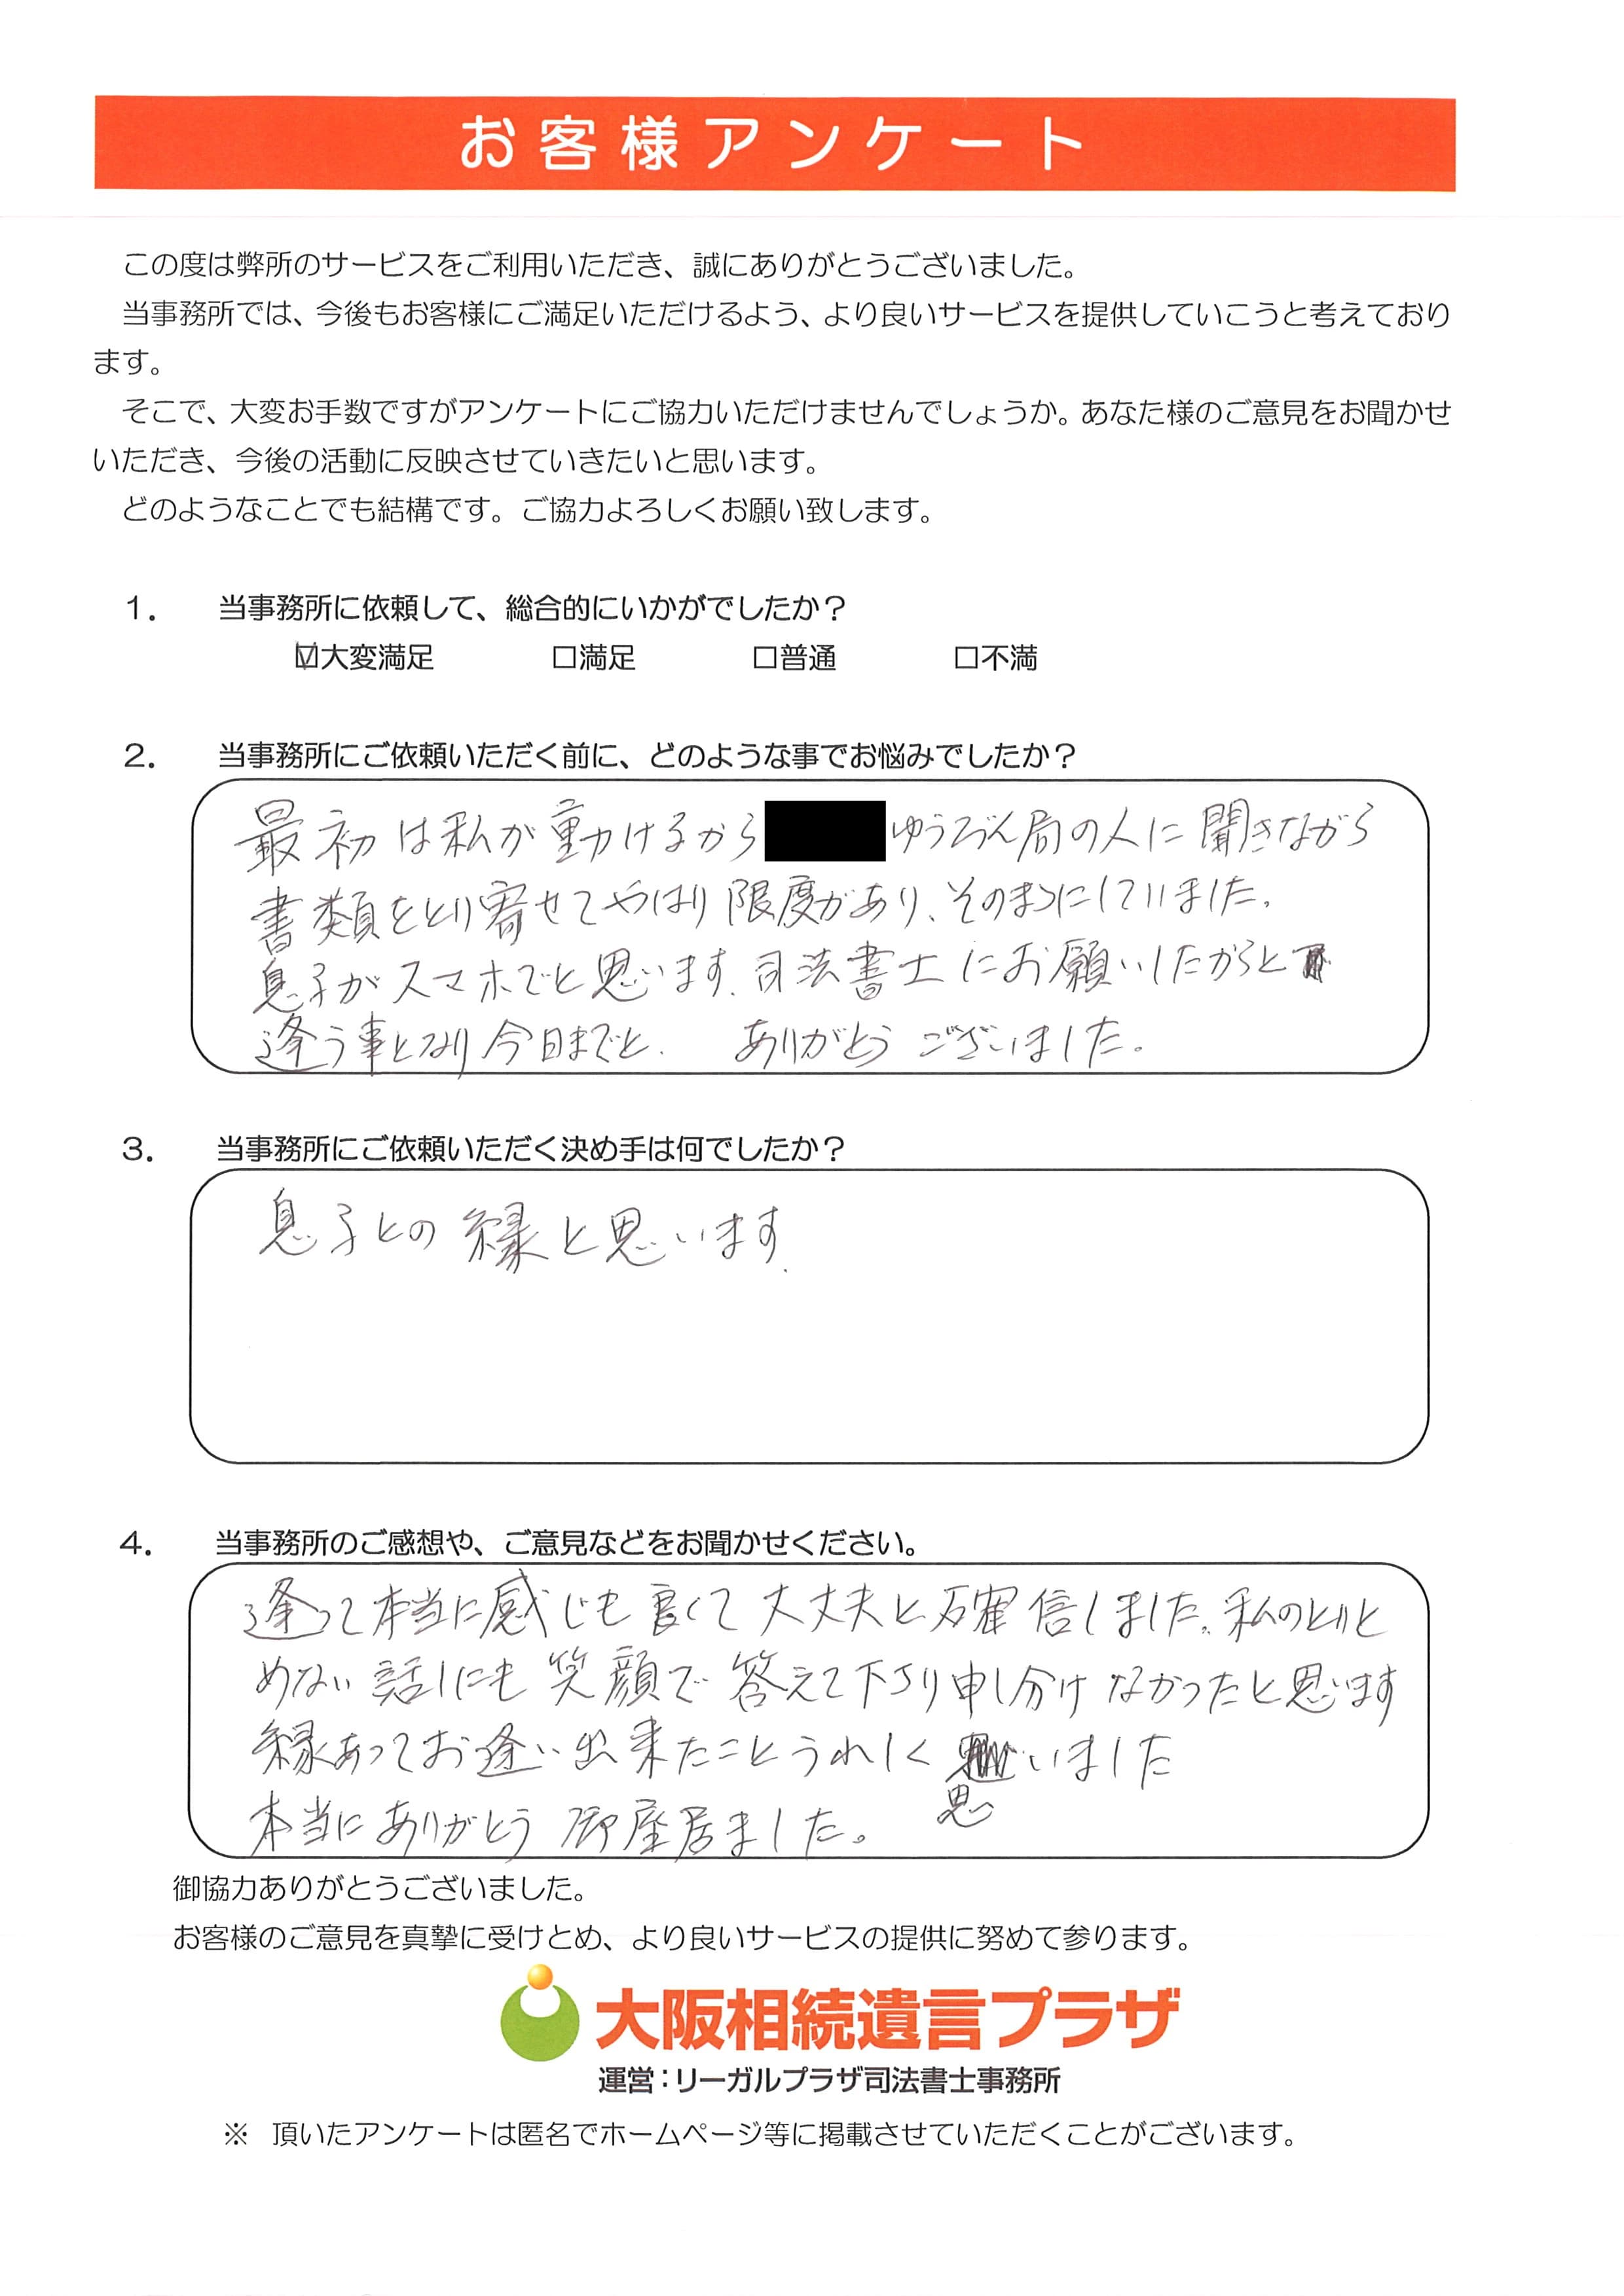 お客様アンケート
この度は弊所のサービスをご利用いただき、誠にありがとうございました。
当事務所では、今後もお客様にご満足いただけるよう、より良いサービスを提供していこうと考えており
ます。
そこで、大変お手数ですがアンケートにご協力いただけませんでしょうか。あなた様のご意見をお聞かせ
いただき、今後の活動に反映させていきたいと思います。
どのようなことでも結構です。ご協力よろしくお願い致します。
1. 当事務所に依頼して、総合的にいかがでしたか？
☑大変満足 □満足 □普通 □不満
2. 当事務所にご依頼いただく前に、どのような事でお悩みでしたか？
最初は私が動けるから ゆうびん局の人に聞きながら
書類をとり寄せてやはり限度があり、そのまゝにしていました。
息子がスマホでと思います。司法書士にお願いしたからと
逢う事となり今日までと. ありがとうございました。
3. 当事務所にご依頼いただく決め手は何でしたか？
息子との縁と思います.
4. 当事務所のご感想や、ご意見などをお聞かせください。
逢って本当に感じも良くて大丈夫と確信しました。私のとりと
めない話しにも笑顔で答えて下さり申し分けなかったと思います
縁あってお逢い出来たことうれしく思いました
本当にありがとう御座居ました。
御協力ありがとうございました。
お客様のご意見を真摯に受けとめ、より良いサービスの提供に努めて参ります。
大阪相続遺言プラザ
運営：リーガルプラザ司法書士事務所
※ 頂いたアンケートは匿名でホームページ等に掲載させていただくことがございます。